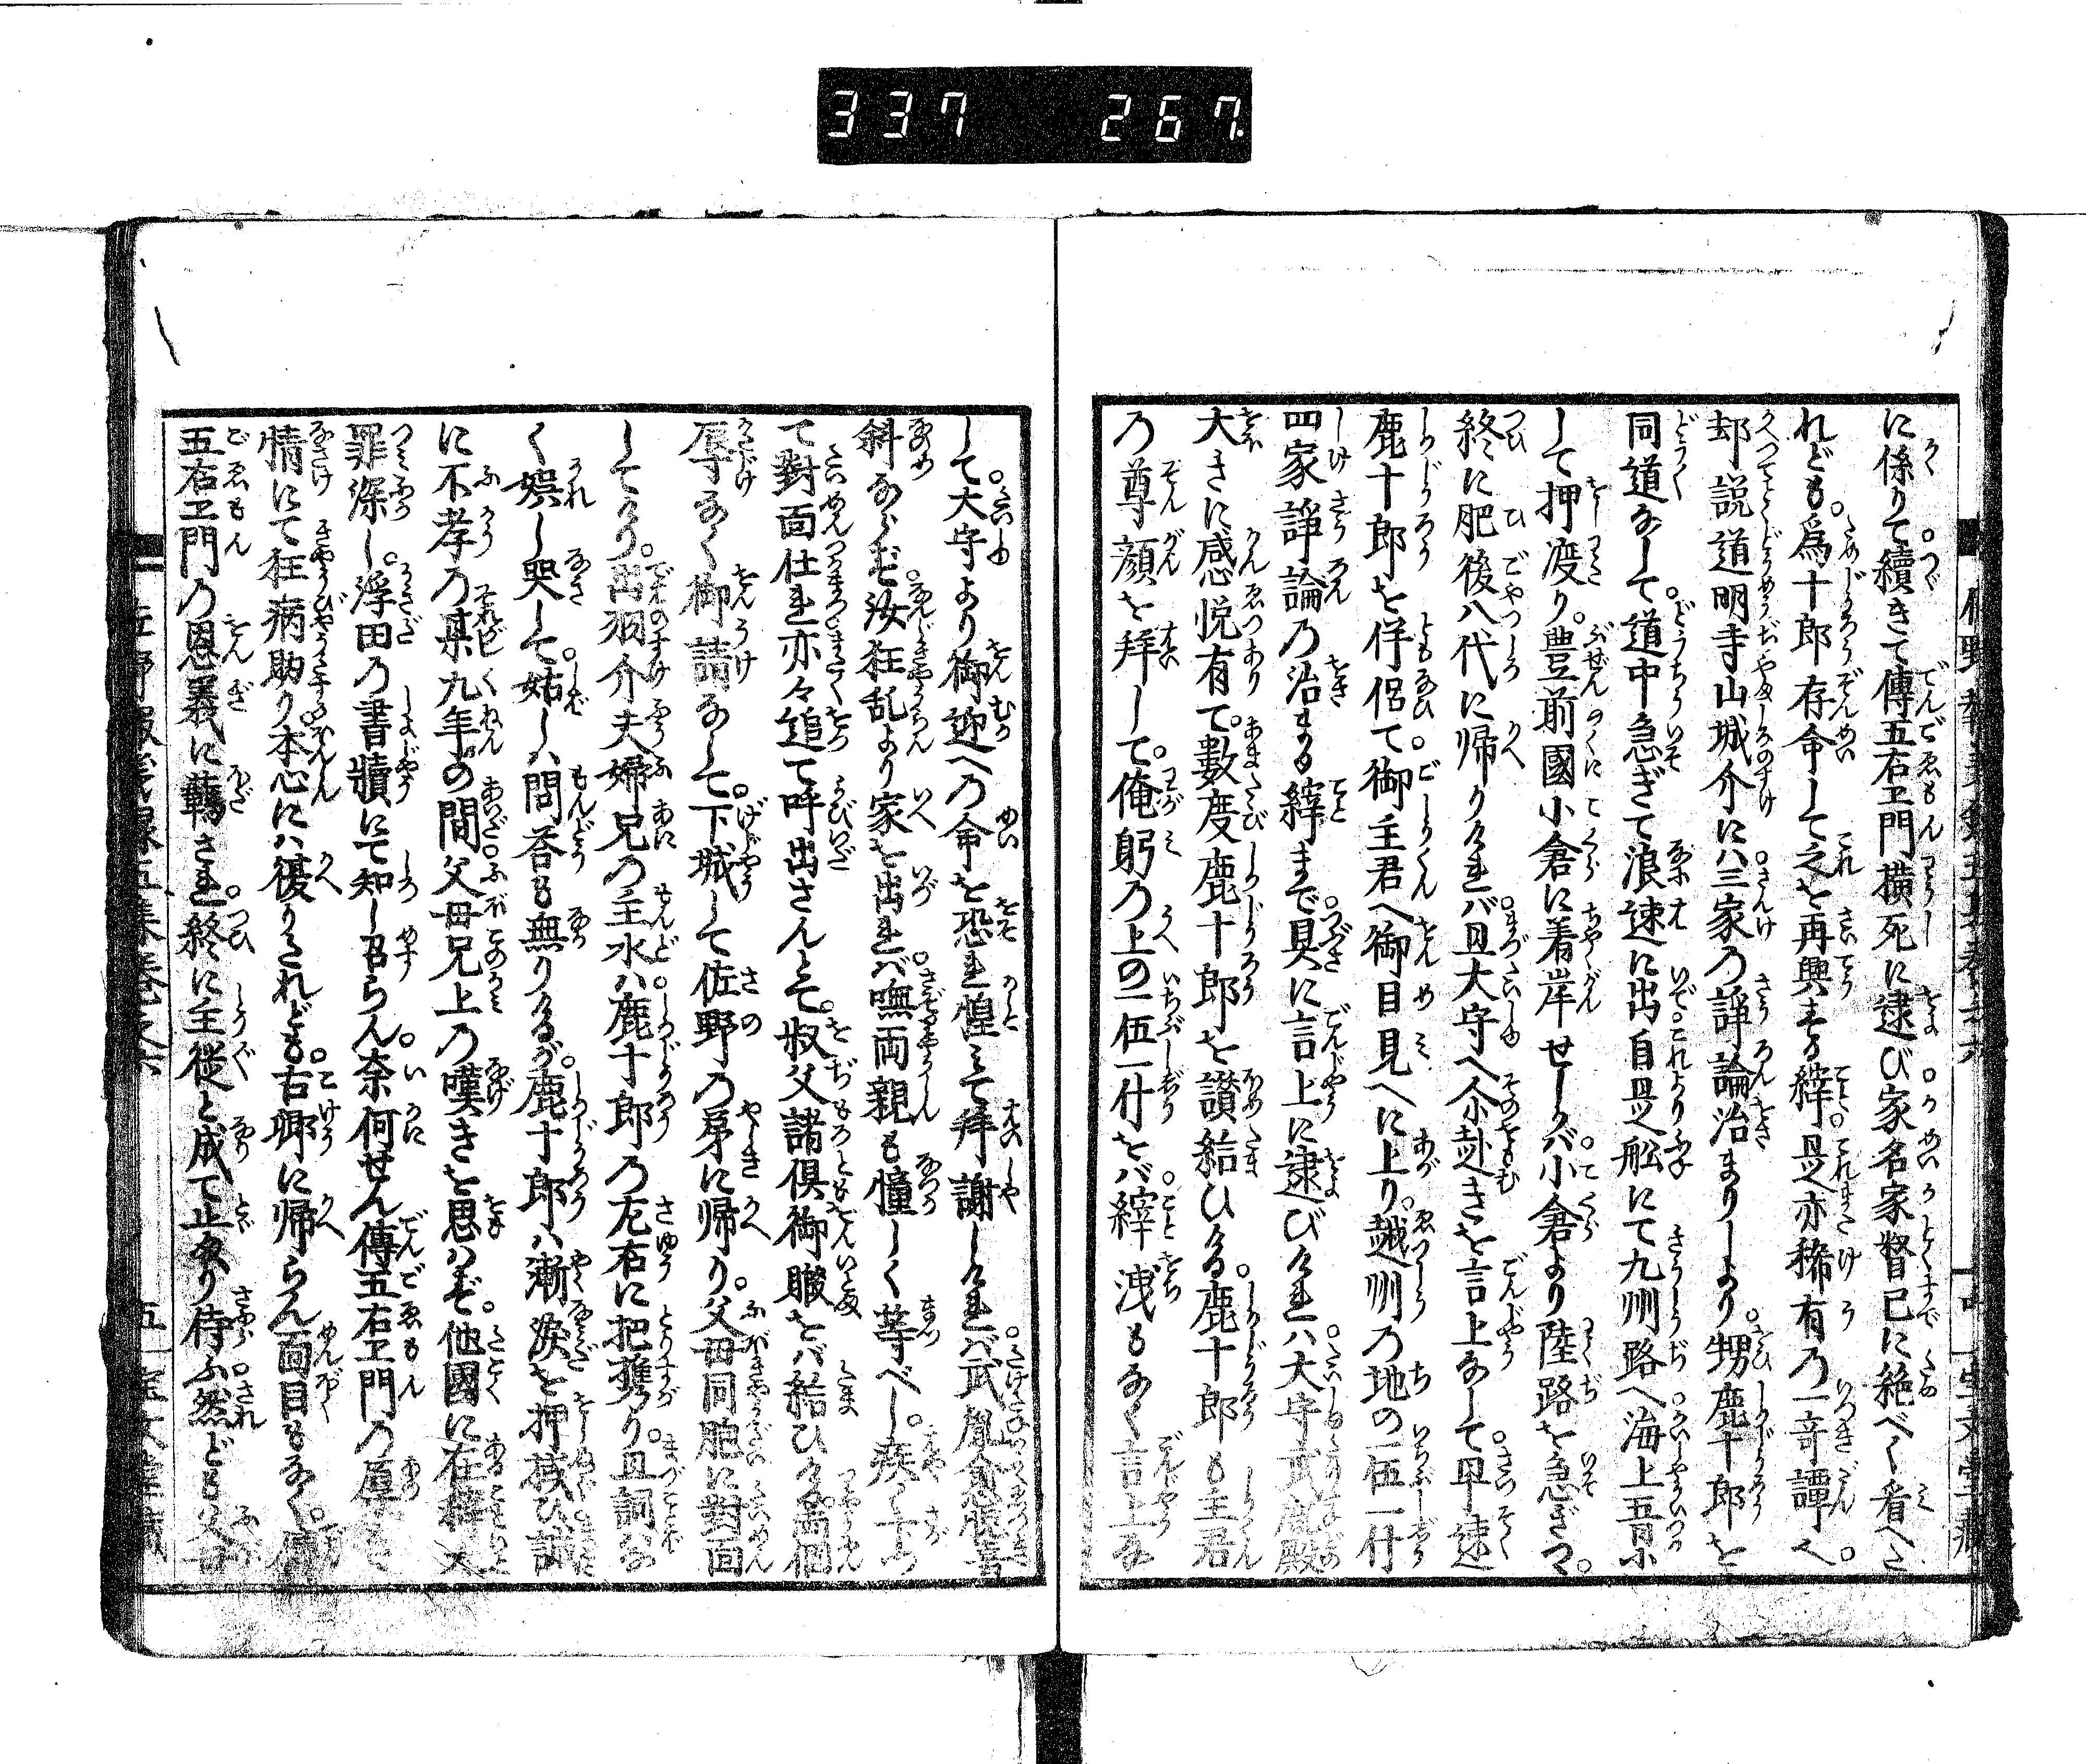 337 267.
に係りて續きて傳五右エ門横死に逮び家名家督已に絶べく看へた
れども。爲十郎存命して之を再興する縡。是亦稀有の一奇譚へ。
却説道明寺山城介には三家の諍論治まりしより。甥鹿十郎を
同道なして。道中急ぎて浪速に出自是舩にて九州路へ海上
して押渡り。豊前國小倉に着岸せしかバ小倉より陸路を急ぎつゝ。
終に肥後八代に帰りけれバ且大守へ赴きを言上なして早速
鹿十郎を伴侶て。御主君へ御目見へに上り。越州の地の一伍一什
四家諍論の治まる縡まで具に言上に逮びけれハ大守武胤殿
大きに感悦有て。數度鹿十郎を讃給ひける。鹿十郎も主君
の尊顔を拜して。俺躬の上の一伍一什をバ縡洩もなく言上な
して。大守より御迎への命を恐れ惶みて拜謝しけれバ武胤
斜ならず。汝狂乱より家を出れバ嘸両親も憧しく等べし。疾々
て對面仕れ亦々追て呼出さんとて。叔父諸倶御暇をバ給ひける両個
辱なく御請なして。下城して佐野の第に帰り。父母同胞に對面
してけり。出羽介夫婦兄の主水ハ鹿十郎の左右に把携り。且詞な
く娯し哭して。姑しハ問荅も無りけるが。鹿十郎ハ漸涙を押拭ひ誠
に不孝の某九年の間父母兄上の嘆きを思はず。他國に在
罪深し。浮田の書牘にて知し召らん。奈何せん傳五右エ門の厚き
情にて狂病助り。本心にハ復りたれども。古郷に帰らん面目もなく。
五右エ門の恩義に羈され。終に主從と成て止奴り侍ふ然ども父母